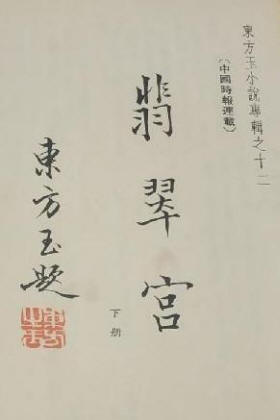 東方玉小說專輯之十二
(中國時報連載)
翡翠宮
下册
東方玉題